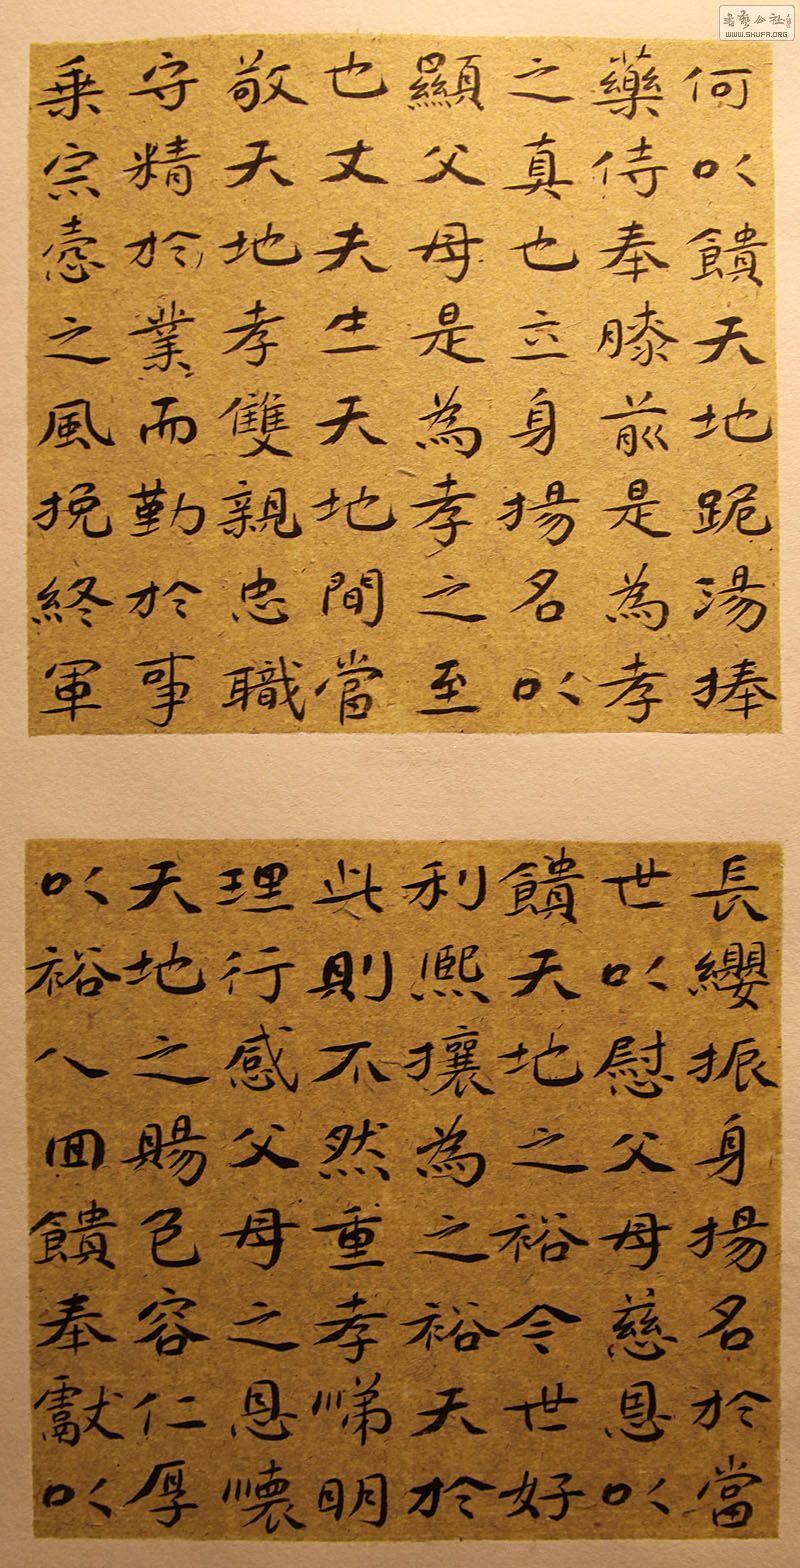 何以饋天地跪湯捧
藥侍奉膝前是為孝
之真也立身揚名以
顯父母是為孝之至
也丈夫生天地間當
敬天地孝雙親忠職
守精於業而勤於事
乘宗愨之風挽終軍
長纓振身揚名於當
世以慰父母慈恩以
饋天地之裕今世好
利熙攘為之裕天於
此則不然重孝悌明
理行感父母之恩懷
天地之賜色容仁厚
以裕八回饋奉獻以
書藝公社
WWW.SHUFA.ORG